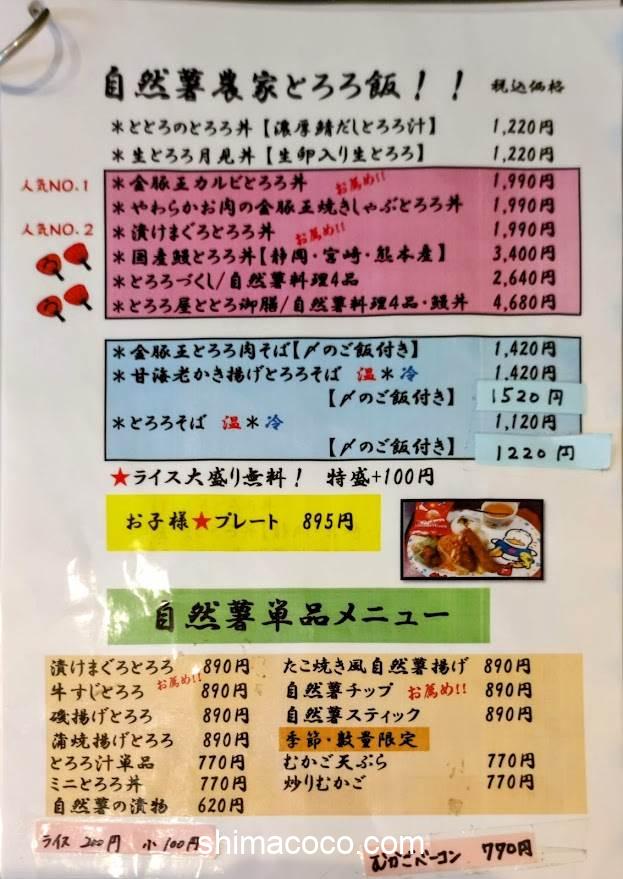 自然薯農家とろろ飯！！ 税込価格
＊ととろのとろろ丼【濃厚鯖だしとろろ汁】 1,220円
＊生とろろ月見丼【生卵入り生とろろ】 1,220円
人気NO.1 ＊金豚王カルビとろろ丼 お薦め!! 1,990円
＊やわらかお肉の金豚王焼きしゃぶとろろ丼 1,990円
人気NO.2 ＊漬けまぐろとろろ丼 お薦め!! 1,990円
＊国産鰻とろろ丼【静岡・宮崎・熊本産】 3,400円
＊とろろづくし/自然薯料理4品 2,640円
＊とろろ屋ととろ御膳/自然薯料理4品・鰻丼 4,680円
＊金豚王とろろ肉そば【〆のご飯付き】 1,420円
＊甘海老かき揚げとろろそば 温＊冷 1,420円
【〆のご飯付き】 1520円
＊とろろそば 温＊冷 1,120円
【〆のご飯付き】 1220円
★ライス大盛り無料！ 特盛+100円
お子様★プレート 895円
自然薯単品メニュー
漬けまぐろとろろ 890円
牛すじとろろ お薦め!! 890円
磯揚げとろろ 890円
蒲焼揚げとろろ 890円
とろろ汁単品 770円
ミニとろろ丼 770円
自然薯の漬物 620円
たこ焼き風自然薯揚げ 890円
自然薯チップ お薦め!! 890円
自然薯スティック 890円
季節・数量限定
むかご天ぷら 770円
炒りむかご 770円
ライス 200円 小 100円
shimacoco.com
むかごベーコン 770円